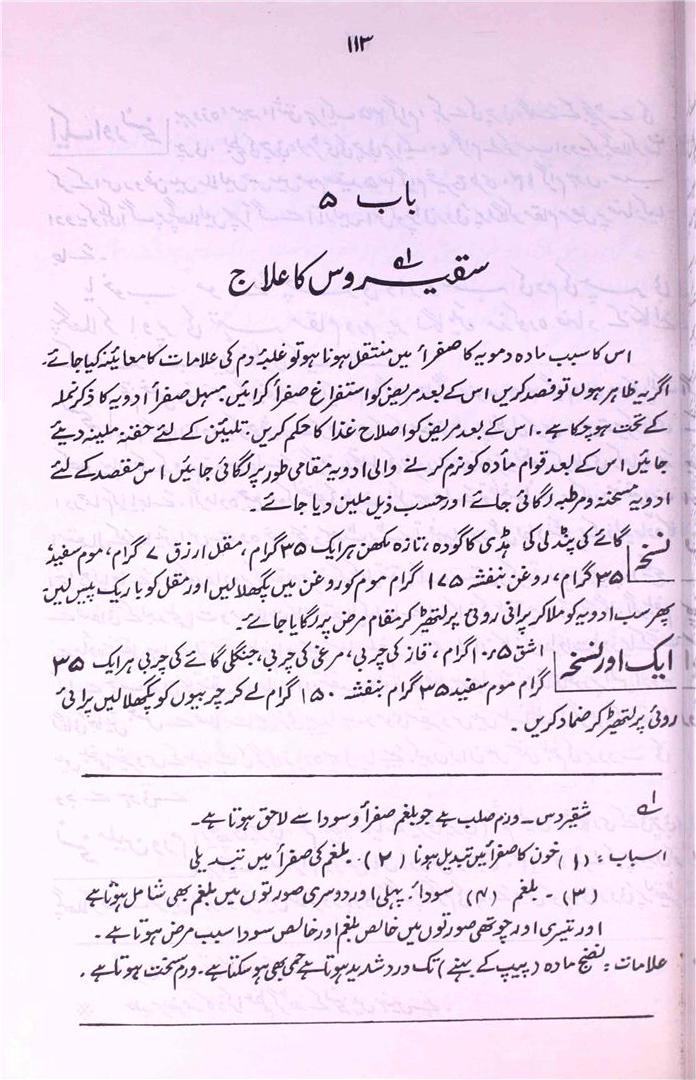 ۱۱۳
باب ۵
سقیروس کا علاج ؎۱
اس کا سبب مادہ دمویہ کا صفرأ میں منتقل ہونا ہو تو غلبۂ دم کی علامات کا معائینہ کیا جائے۔
اگر یہ ظاہر ہوں تو فصد کریں اس کے بعد مریض کو استفراغ صفرأ کرائیں۔ مسہل صفرأ ادویہ کا ذکر نملہ
کے تحت ہو چکا ہے۔ اس کے بعد مریض کو اصلاح غذا کا حکم کریں۔ تلیئن کے لئے حقنہ ملینہ دیئے
جائیں اس کے بعد قوام مأدہ کو نرم کرنے والی ادویہ مقامی طور پر لگائی جائیں اس مقصد کے لئے
ادویہ مسخنہ و مرطبہ لگائی جائے اور حسب ذیل ملین دیا جائے۔
نسخہ گائے کی پنڈلی کی ہڈی کا گودہ، تازہ مکھن ہر ایک ۳۵ گرام، مقل ارزق ۷ گرام، موم سفید
۳۵ گرام، روغن بنفشہ ۱۷۵ گرام موم کو روغن میں پگھلا لیں اور مقل کو باریک پیس لیں
پھر سب ادویہ کو ملا کر پرانی روئی پر لتھیڑ کر مقام مرض پر لگایا جائے۔
ایک اور نسخہ اشق ۱۰٫۵ گرام، قاز کی چربی، مرغی کی چربی، جنگلی گائے کی چربی ہر ایک ۳۵
گرام موم سفید ۳۵ گرام بنفشہ ۱۵۰ گرام لے کر چربیوں کو پگھلا لیں پرانی
روئی پر لتھیڑ کر ضماد کریں۔
؎۱ شقیردس۔ ورم صلب ہے جو بلغم صفرأ و سودا سے لاحق ہوتا ہے۔
اسباب: (۱) خون کا صفرأ میں تبدیل ہونا (۲) بلغم کی صفرأ میں تبدیلی
(۳)۔ بلغم (۴) سودأ۔ پہلی اور دوسری صورتوں میں بلغم بھی شامل ہوتا ہے
اور تیسری اور چوتھی صورتوں میں خالص بلغم اور خالص سودا سبب مرض ہوتا ہے۔
علامات: نضج مادہ (پیپ کے بہنے) تک درد شدید ہوتا ہے حمی بھی ہو سکتا ہے۔ ورم سخت ہوتا ہے۔